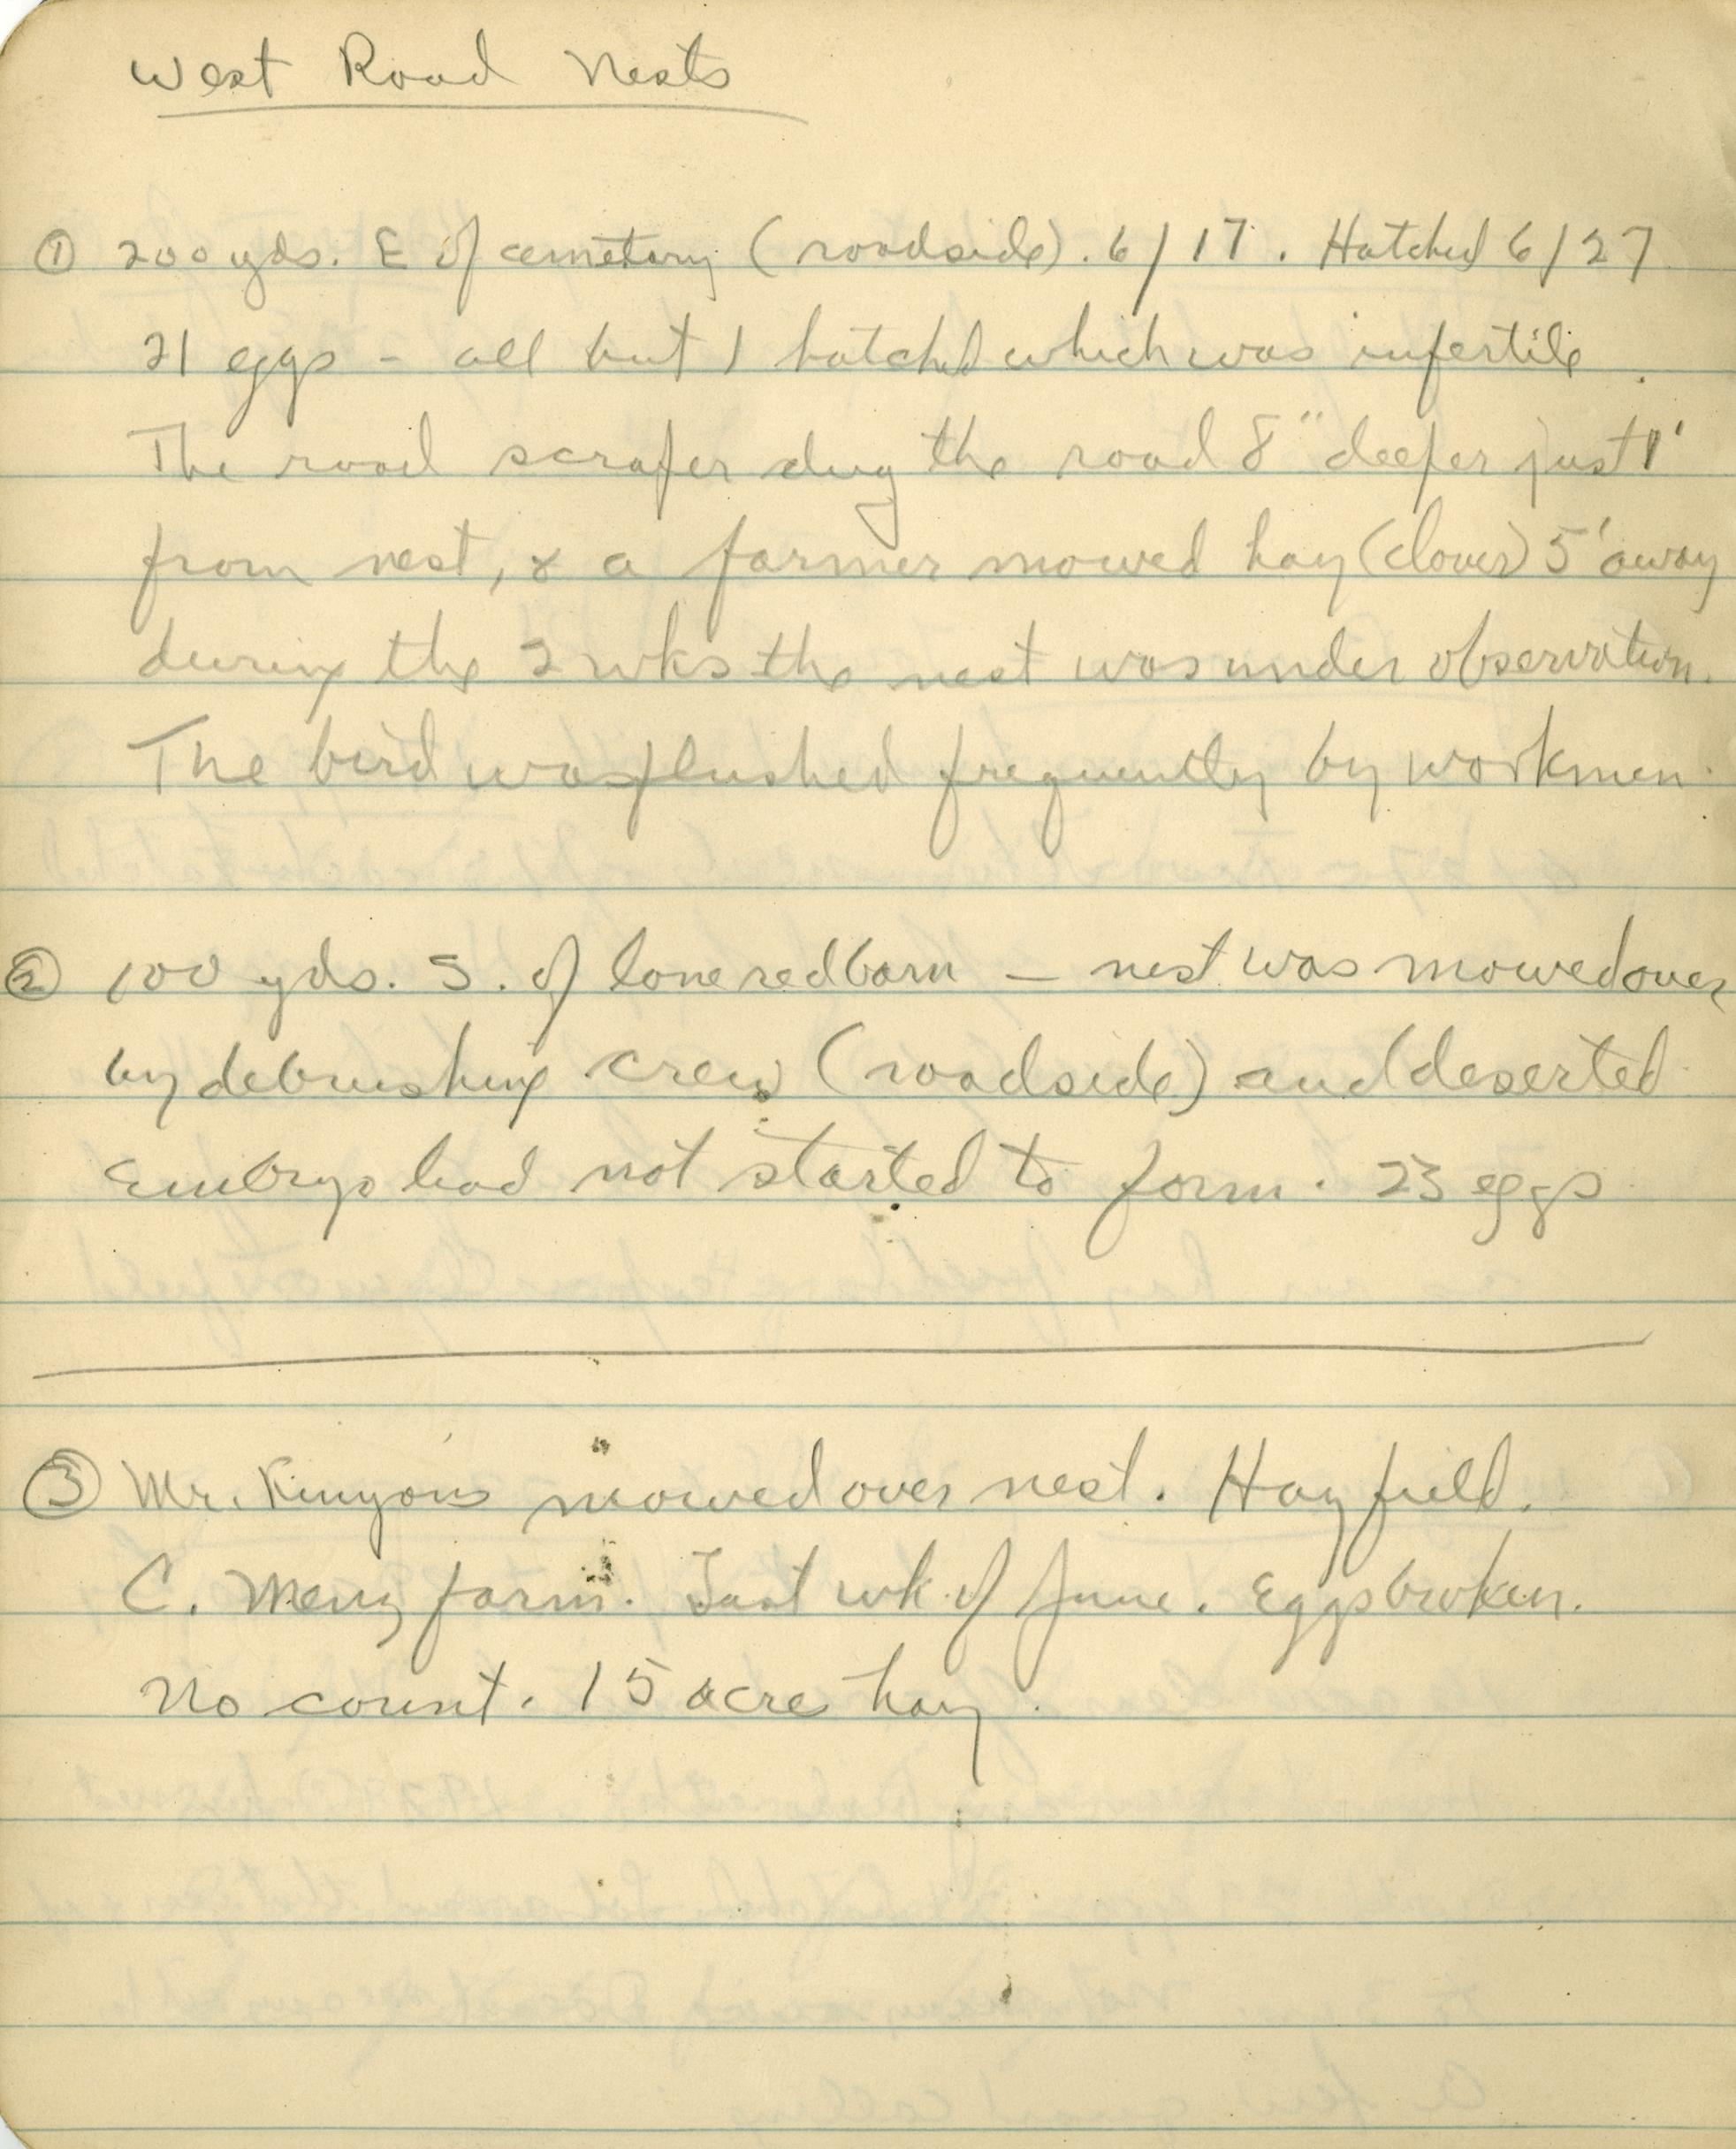 West Road Nests
① 200 yds. E of cemetery (roadside). 6/17. Hatched 6/27
21 eggs - all but 1 hatched which was infertile.
The road scraper dug the road 8" deeper just 1'
from nest, & a farmer mowed hay (clover) 5' away
during the 2 wks the nest was under observation.
The bird was flushed frequently by workmen.
② 100 yds. S. of lone red barn – nest was mowed over
by debrushing crew (roadside) and deserted
Embryo had not started to form. 23 eggs
③ Mr. Kinyons mowed over nest. Hay field.
C. farm. Last wk of June. Eggs broken.
No count. 15 acre hay.